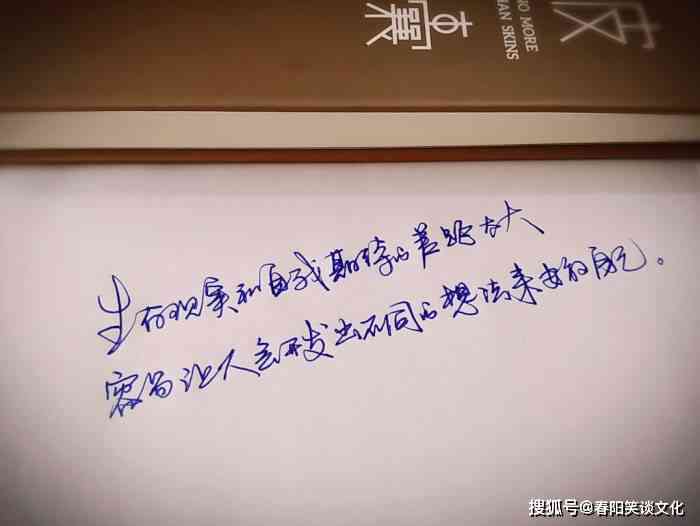 皮
囊
NO MORE
MAN SKINS
生存现实和自我期待的差距太大
容易让人会开发出不同的想法来安放自己。
搜狐号@春阳笑谈文化